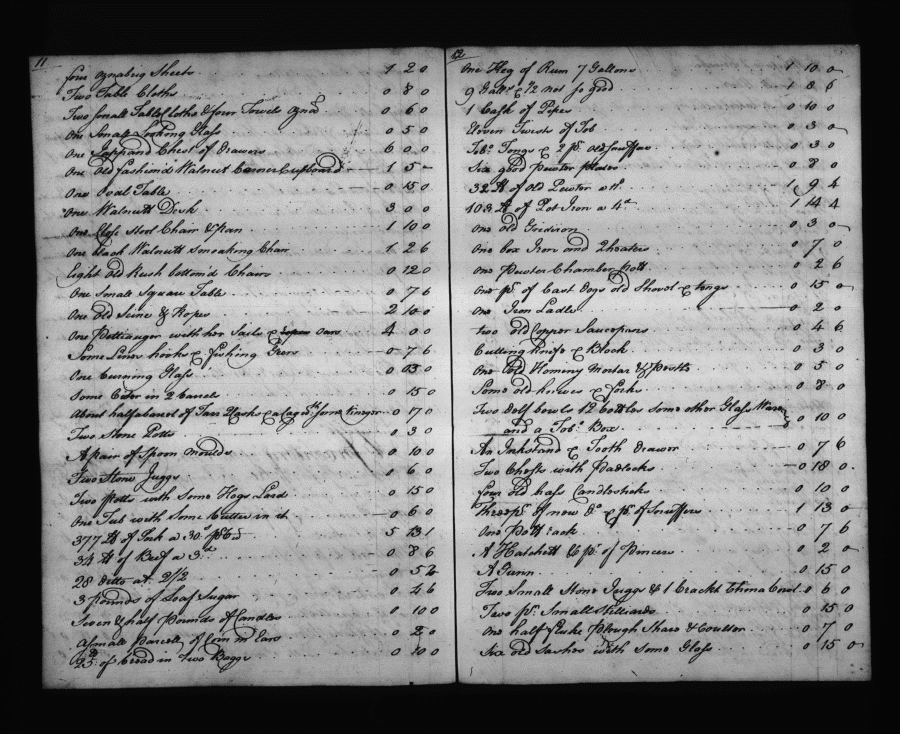 11
four oznabrig Sheets 1 2 0
Two Table Cloths 0 8 0
Two Small Table Cloths & four Towels 0 6 0
One Small Looking Glass 0 5 0
One Chest of Drawers 6 0 0
One Old fashion'd Walnut Corner Cupboard 1 5 -
One Oval Table 0 15 0
One Walnutt Desk 3 0 0
One Close Stool Chair & Pan 1 10 0
One black Walnutt Smoaking Chair 1 2 6
Eight Old Rush bottom'd Chairs 0 12 0
One Small Square Table 0 7 6
One Old Seine & Ropes 2 10 0
One Pettiauger with her Sails & Oars 4 0 0
Some Lines hooks & fishing 0 7 6
One Burning Glass 0 03 0
Some Cider in 2 barels 0 15 0
About half a barrel of Tarr 0 17 0
Two Stone Potts 0 3 0
A pair of Spoon Moulds 0 10 0
Five Stone Juggs 0 6 0
Two Potts with Some Hogs Lard 0 15 0
One Tub with Some Butter in it 0 6 0
377 lb of Pork a 30s 5 13 1
34 lb of Beef a 3d 0 8 6
28 ditto at 2 1/2 0 5
3 pounds of Loaf Sugar 0 4 6
Seven & half Pounds of Candles 0 10 0
A Small Parcell of Corn in Ears 0 2 0
25 of bread in two Baggs 0 10 0
12
One Keg of Rum 7 Gallons 1 10 0
9 Gallns & 1/2 not so good 1 8 6
1 Cask of Pipes 0 10 0
Seven Twists of Tob 0 3 0
Tobo Tongs & 2 pr Old Snuffers 0 3 0
Six good Pewter plates 0 8 0
32 lb of Old Pewter a 11d 1 9 4
103 lb of Pot Iron a 4d 1 14 4
One old Gridiron 0 3 0
One box Iron and 2 heaters 0 7 0
One Pewter Chamber Pott 0 2 6
One pr of Cast Dogs old Shovel & tongs 0 15 0
One Iron Ladle 0 2 0
two old Copper Saucepans 0 4 6
Cutting knife & Block 0 3 0
One Old Hominy Mortar & Pestle 0 5 0
Some old horses & forks 0 8 0
Two Delf bowls 12 bottles some other Glass Ware
and a Tobo Box 0 10 0
An Inkstand & Tooth Drawer 0 7 6
Two Chests with Padlocks 0 18 0
four Old brass Candlesticks 0 10 0
Three pr of new Do & pr of Snuffers 1 13 0
One Pott rack 0 7 6
A Hatchett & pr of Pincers 0 2 0
A Gunn 0 15 0
Two Small Stone Juggs & 1 Crackt China Bowl 0 6 0
Two pr Small Stilliards 0 15 0
One half fluke Plough Share & Coulter 0 7 0
Six old Sashes with Some Glass 0 15 0